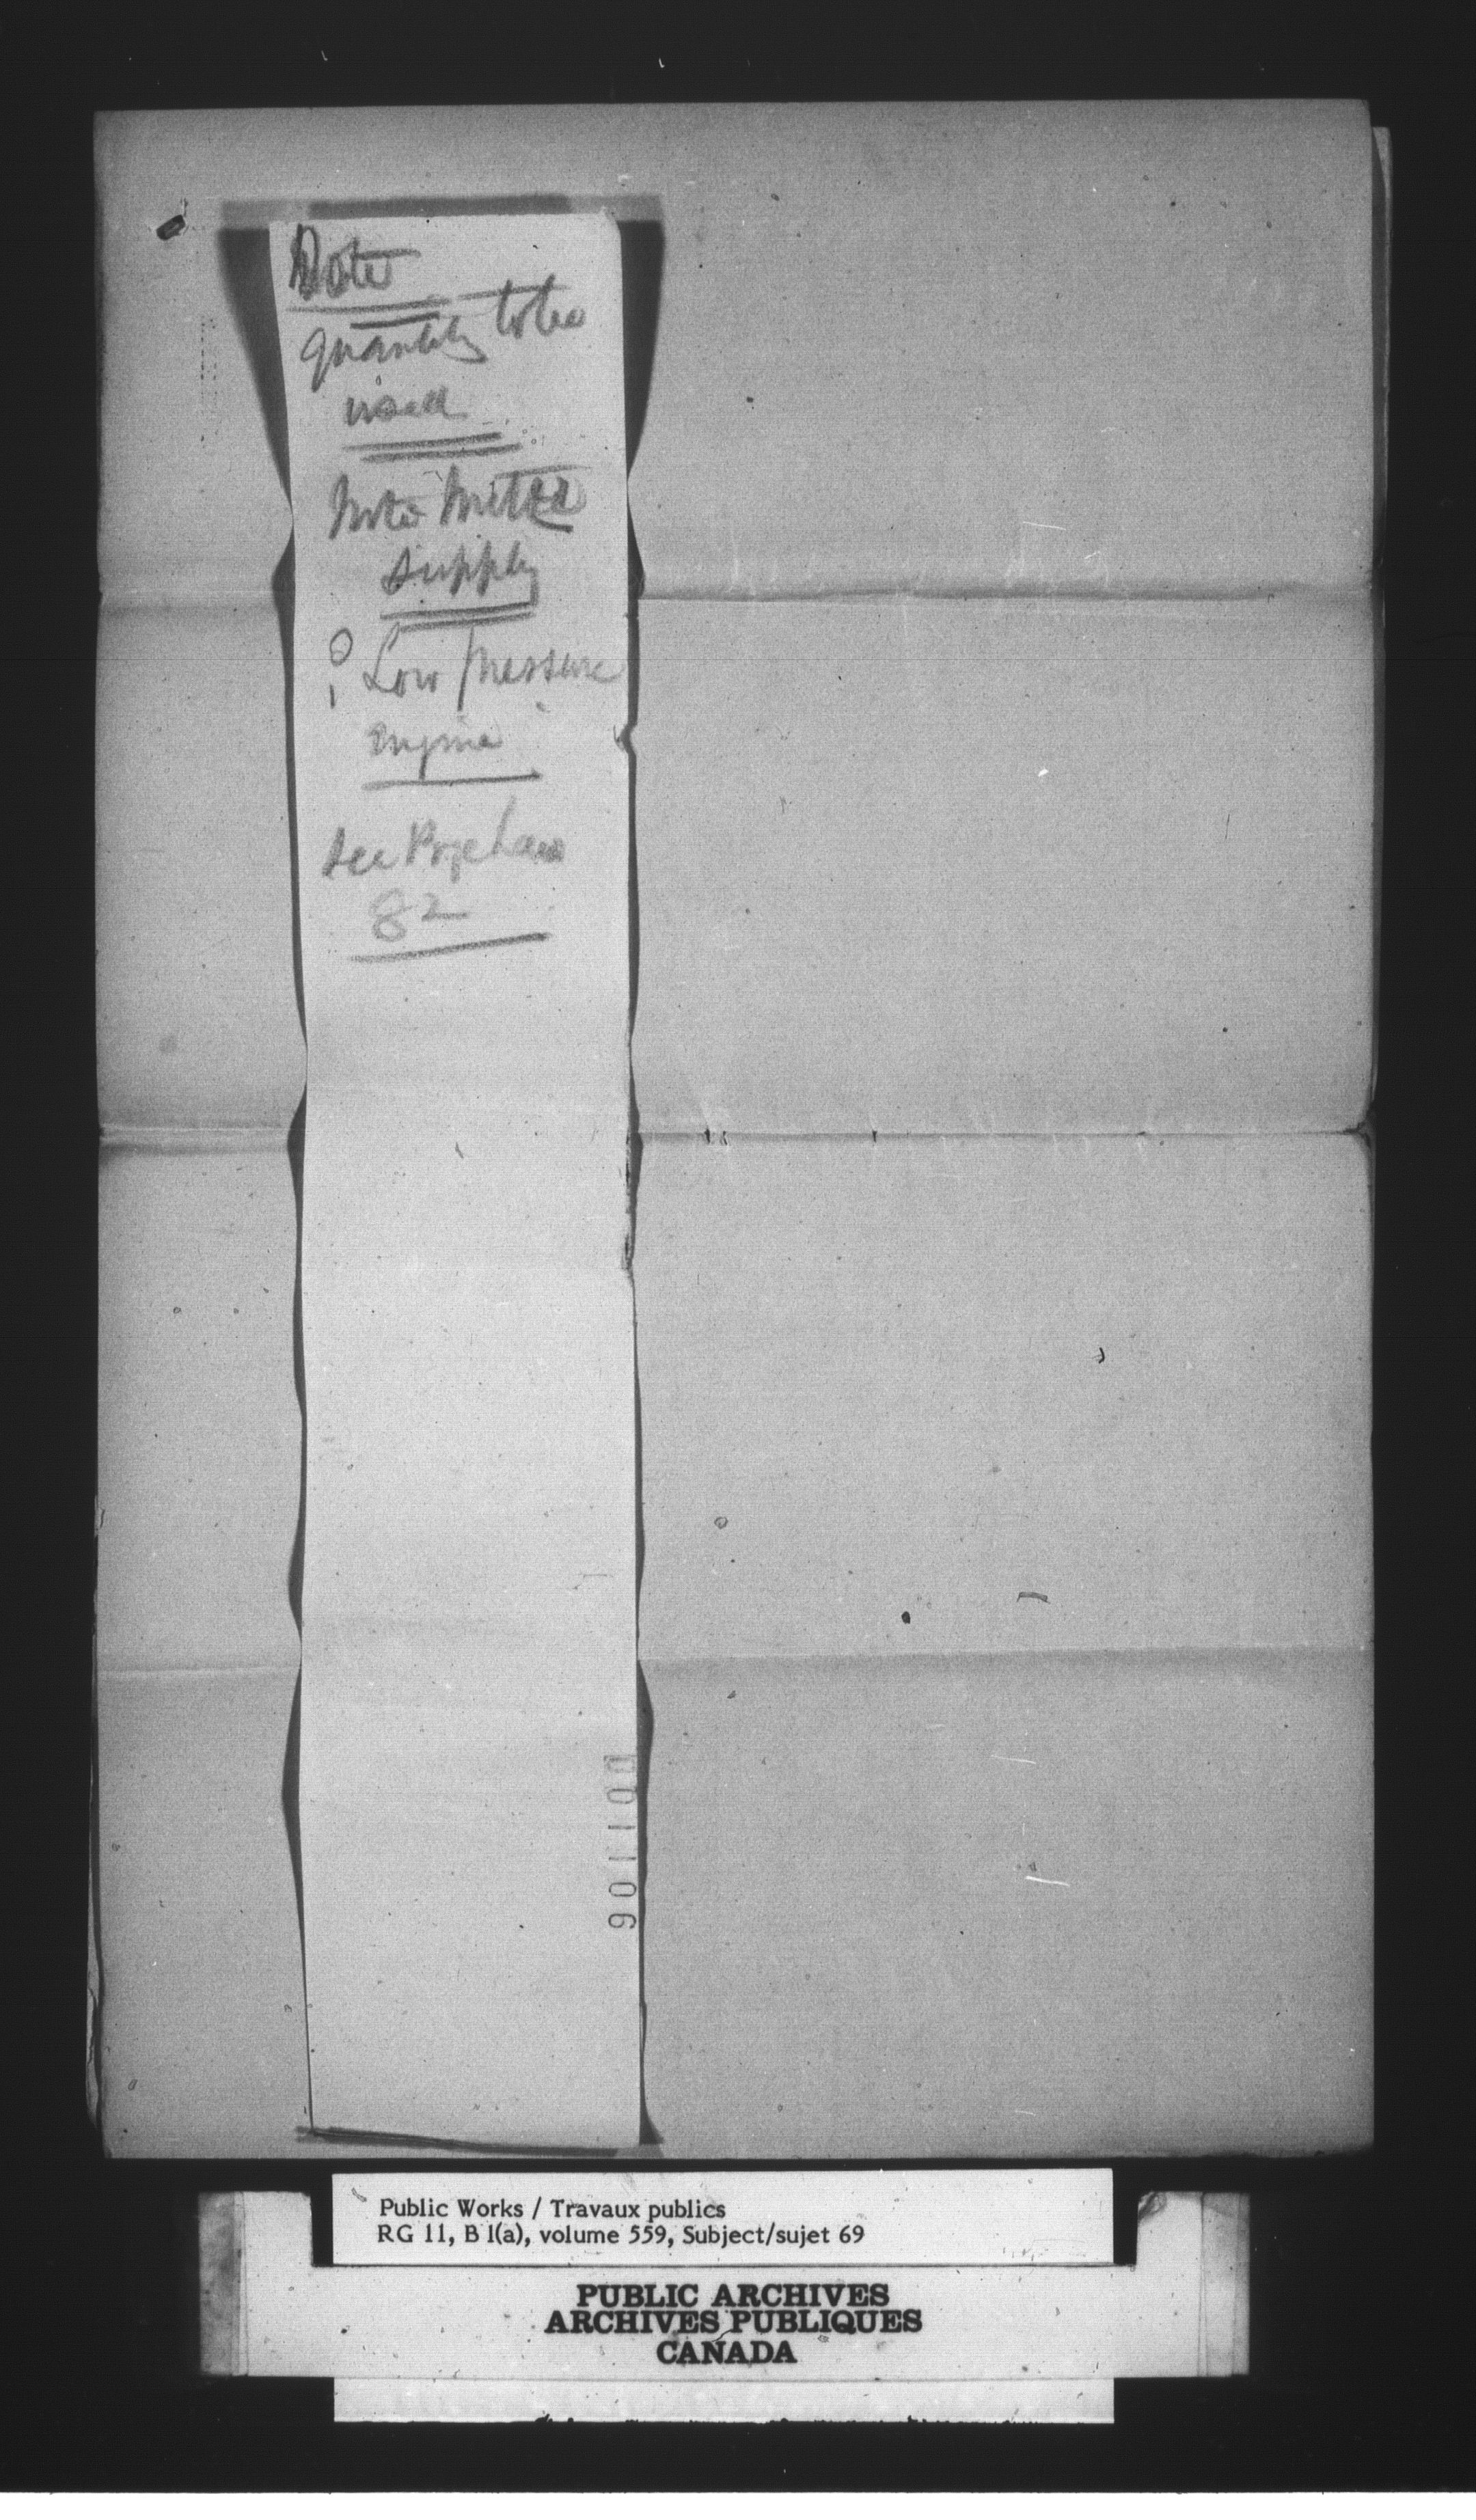 Note
quantity to be
used
Note
supply
? Low Pressure
Engine
see
82
001106
Public Works / Travaux publics
RG 11, B 1(a), volume 559, Subject/sujet 69
PUBLIC ARCHIVES
ARCHIVES PUBLIQUES
CANADA